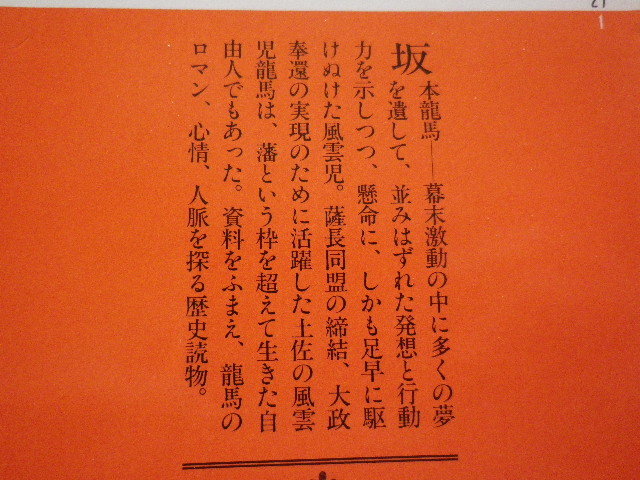 坂本龍馬――幕末激動の中に多くの夢
を遺して、並みはずれた発想と行動
力を示しつつ、懸命に、しかも足早に駆
けぬけた風雲児。薩長同盟の締結、大政
奉還の実現のために活躍した土佐の風雲
児龍馬は、藩という枠を超えて生きた自
由人でもあった。資料をふまえ、龍馬の
ロマン、心情、人脈を探る歴史読物。